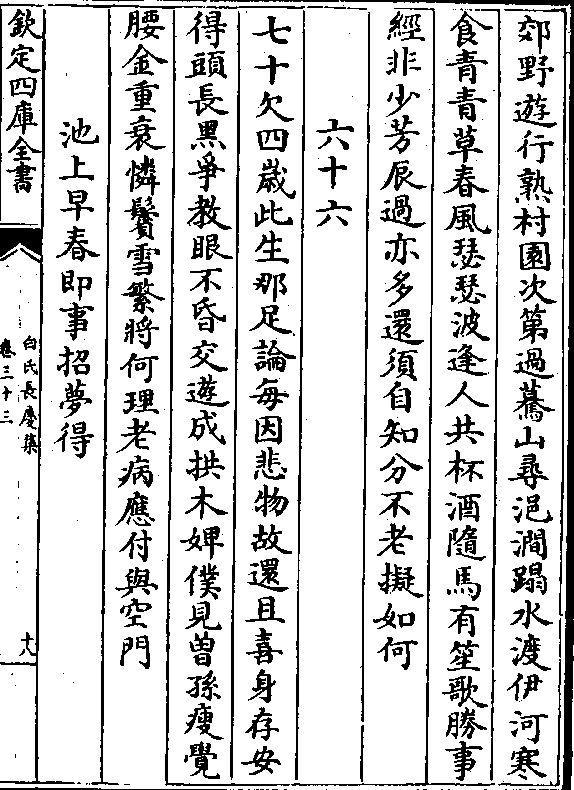 郊野遊行熟村園次第過驀山尋浥澗蹋水渡伊河寒
食青青草春風瑟瑟波逢人共杯酒隨馬有笙歌勝事
經非少芳辰過亦多還須自知分不老擬如何
六十六
七十欠四嵗此生那足論每因悲物故還且喜身存安
得頭長黑爭教眼不昏交遊成拱木婢僕見曽孫瘦覺
腰金重衰憐鬢雪繁將何理老病應付與空門
池上早春即事招夢得
欽定四庫全書
白氏長慶集
卷三十三
十八